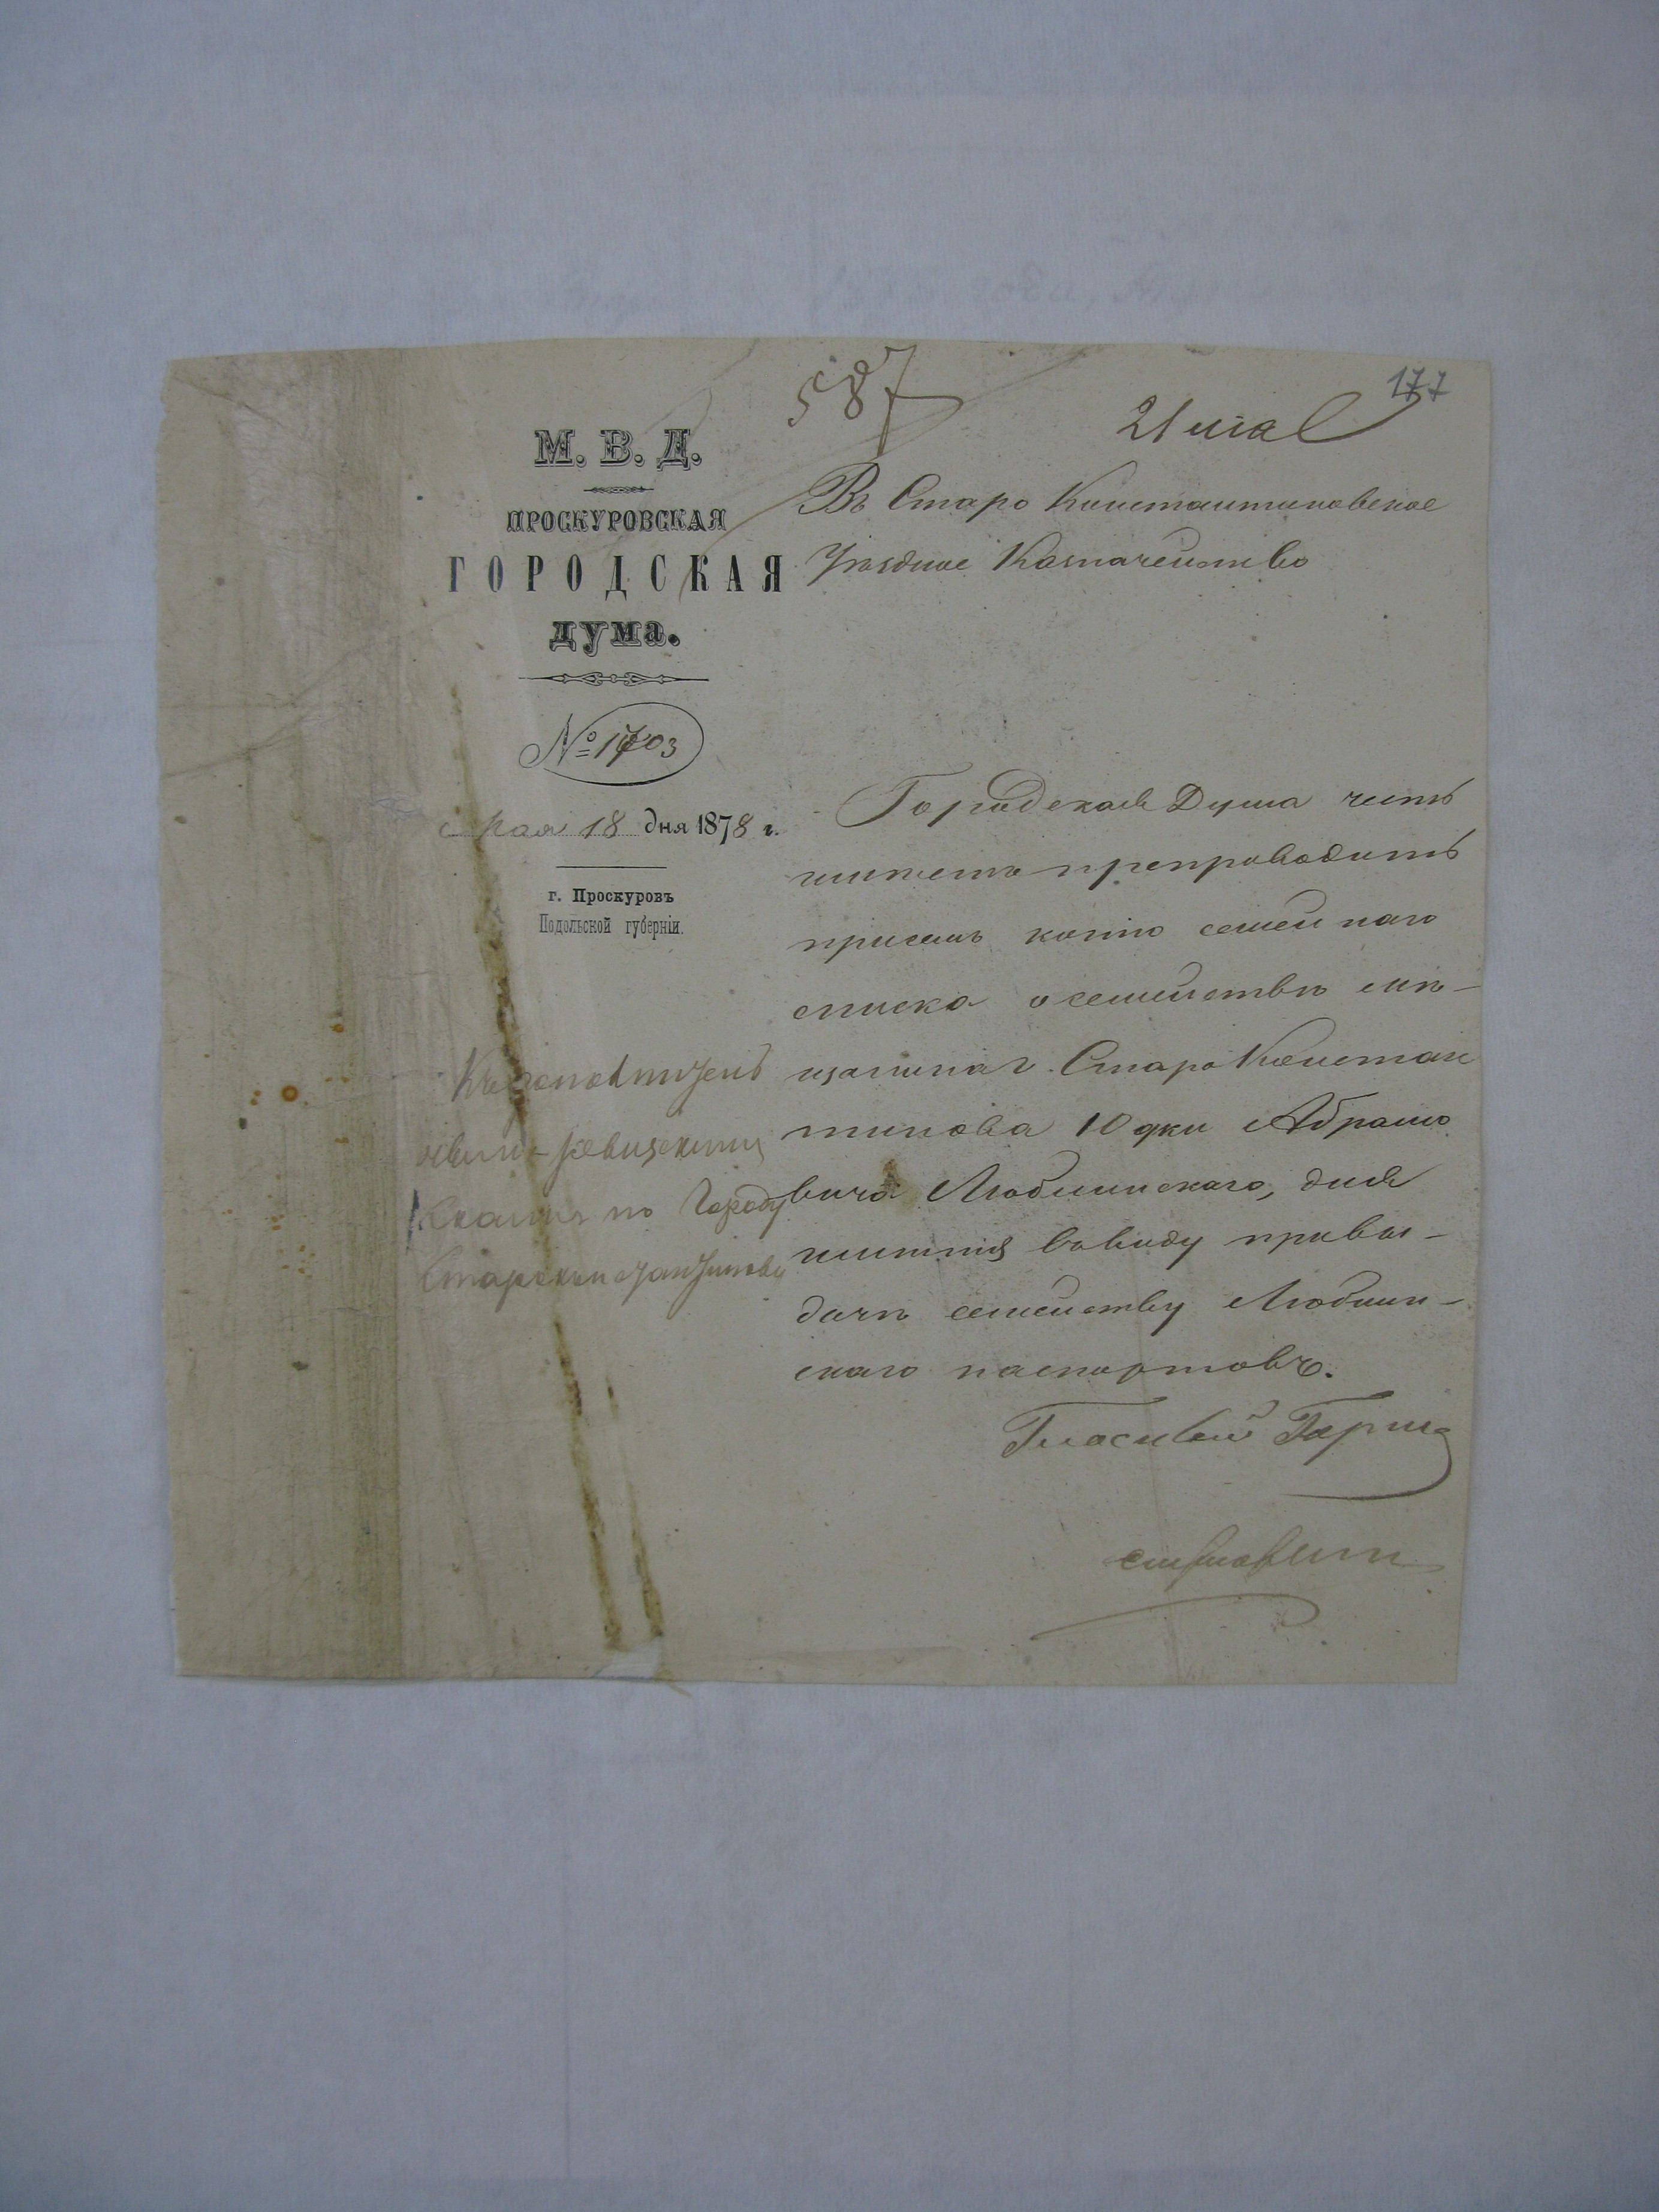 587
21 мая
177
М. В. Д.
ПРОСКУРОВСКАЯ
ГОРОДСКАЯ
дума.
№ 1703
Мая 18 дня 1878 г.
г. Проскуровъ
Подольской губерніи.
Въ Старо Константиновское
Уѣздное Казначейство
Городская Дума честь
имѣетъ препроводить
присемъ копію семейнаго
списка о семействѣ мѣ-
щанина г. Старо Констан
тинова Юдки Абрамо
вича Любминскаго, для
имѣнія ввиду привы-
дачѣ семейству Любмин-
скаго паспортовъ.
Гласный
ревизскимъ
Сказкамъ по Городу
Староконстантинову